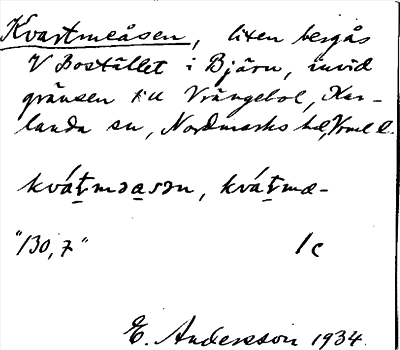 Kvartmeåsen, liten bergås
V Bostället i Bjärn, invid
gränsen till Vrängebol, Kar-
landa sn, Nordmarks hd, Vrml l.
kvát̲məa̲sən, kvát̲mə-
"130,7" 1c
E. Andersson 1934.